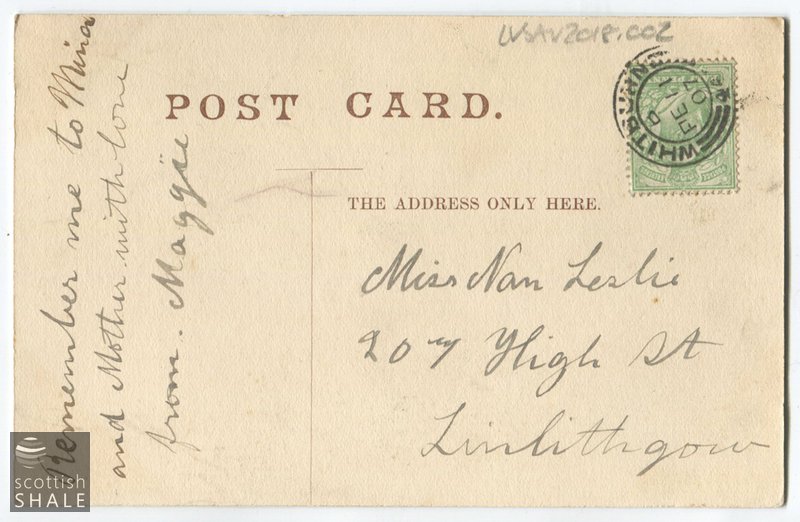 LVSAV2018.002
POST CARD.
WHITBURN
FE
07
THE ADDRESS ONLY HERE.
Miss Nan Leslie
207 High St
Linlithgow
Remember me to Mina
and Mother with love
from. Maggie
scottish
SHALE